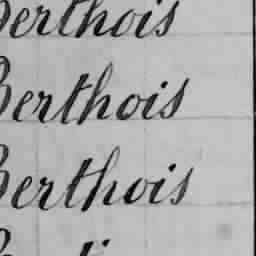 Berthois
Berthois
Berthois